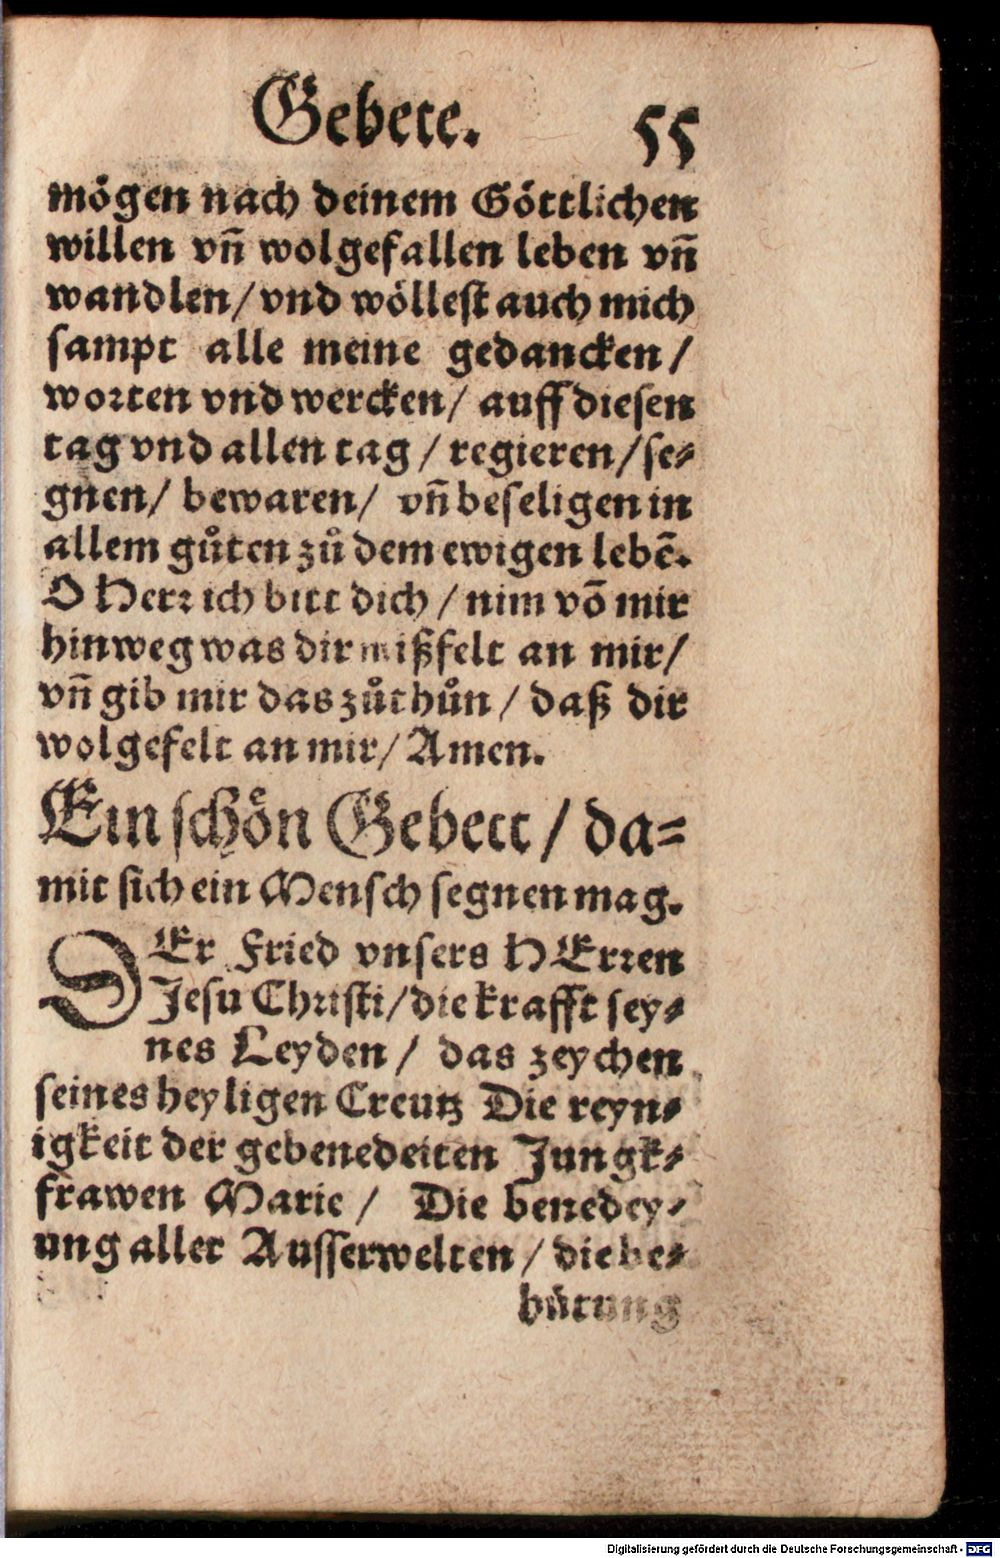 Gebete. 55
mögen nach deinem Göttlichen
willen vñ wolgefallen leben vñ
wandlen/ vnd wöllest auch mich
sampt alle meine gedancken/
worten vnd wercken/ auff diesen
tag vnd allen tag / regieren/ se-
gnen/ bewaren/ vñ beseligen in
allem gůten zů dem ewigen lebē.
O Herr ich bitt dich / nim võ mir
hinweg was dir mißfelt an mir/
vñ gib mir das zůthůn / daß dir
wolgefelt an mir/ Amen.
Ein schön Gebett / da-
mit sich ein Mensch segnen mag.
DEr Fried vnsers HErren
Jesu Christi/ die krafft sey-
nes Leyden / das zeychen
seines heyligen Creutz Die reyn-
igkeit der gebenedeiten Jungk-
frawen Marie / Die benedey-
ung aller Ausserwelten / die be-
hütung
Digitalisierung gefördert durch die Deutsche Forschungsgemeinschaft - DFG